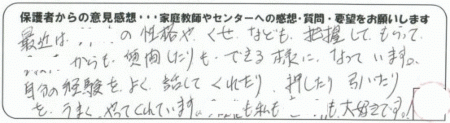 保護者からの意見感想・・・家庭教師やセンターへの感想・質問・要望をお願いします
最近は の性格や くせ なども 把握して もらって
からも 質問したりも できる様に なって います。
自分の経験を よく 話して くれたり 押したり 引いたり
を うまく やってくれています も私も も大好きです。